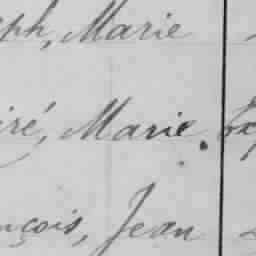 eph, Marie
iré, Marie.
nçois, Jean